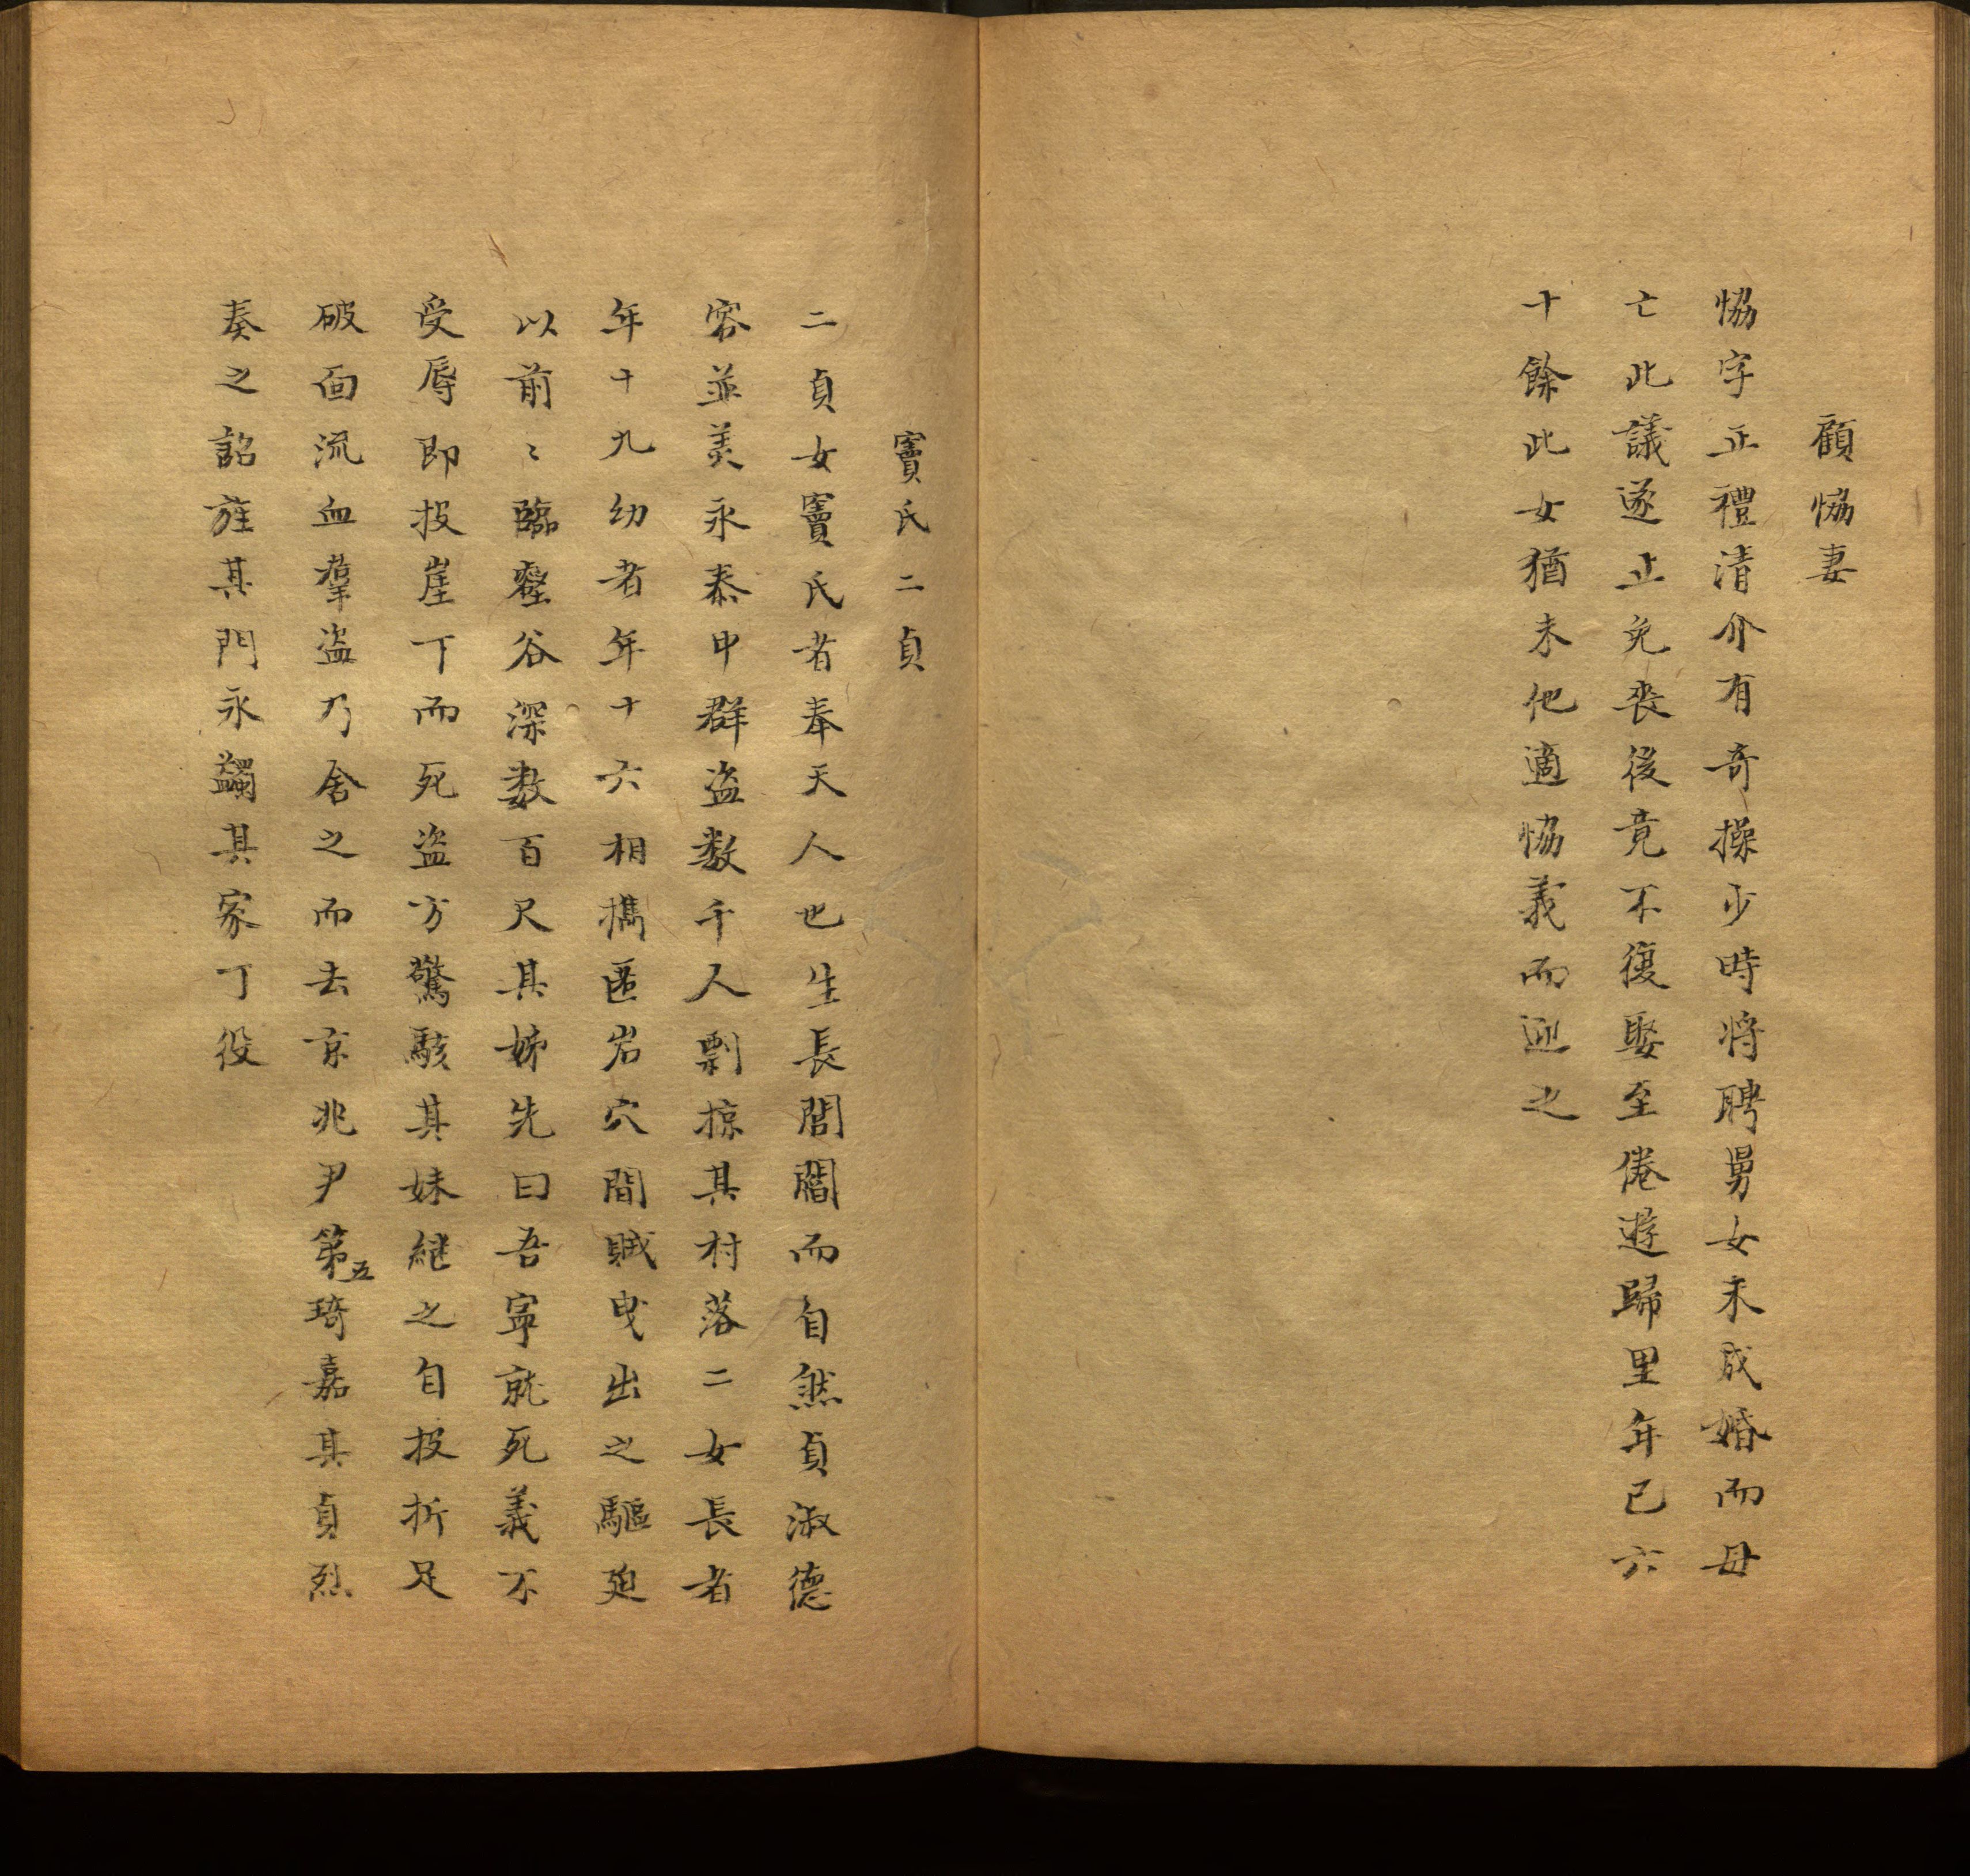 顧恊妻
恊字正禮清介有奇操少時將聘舅女未成婚而母
亡此議遂止免喪後竟不復娶至倦遊歸里年已六
十餘此女猶未他適恊義而迎之
竇氏二貞
二貞女竇氏者奉天人也生長閭閻而自然貞淑德
容並美永泰中群盗数千人剽掠其村落二女長者
年十九幼者年十六相擕匿岩穴間賊曳出之驅廹
以前〻臨壑谷深数百尺其姊先曰吾寜就死義不
受辱即投崖下而死盗方驚駭其妹継之自投折足
破面流血羣盗乃舍之而去京兆尹第五琦嘉其貞烈
奏之詔旌其門永蠲其家丁役